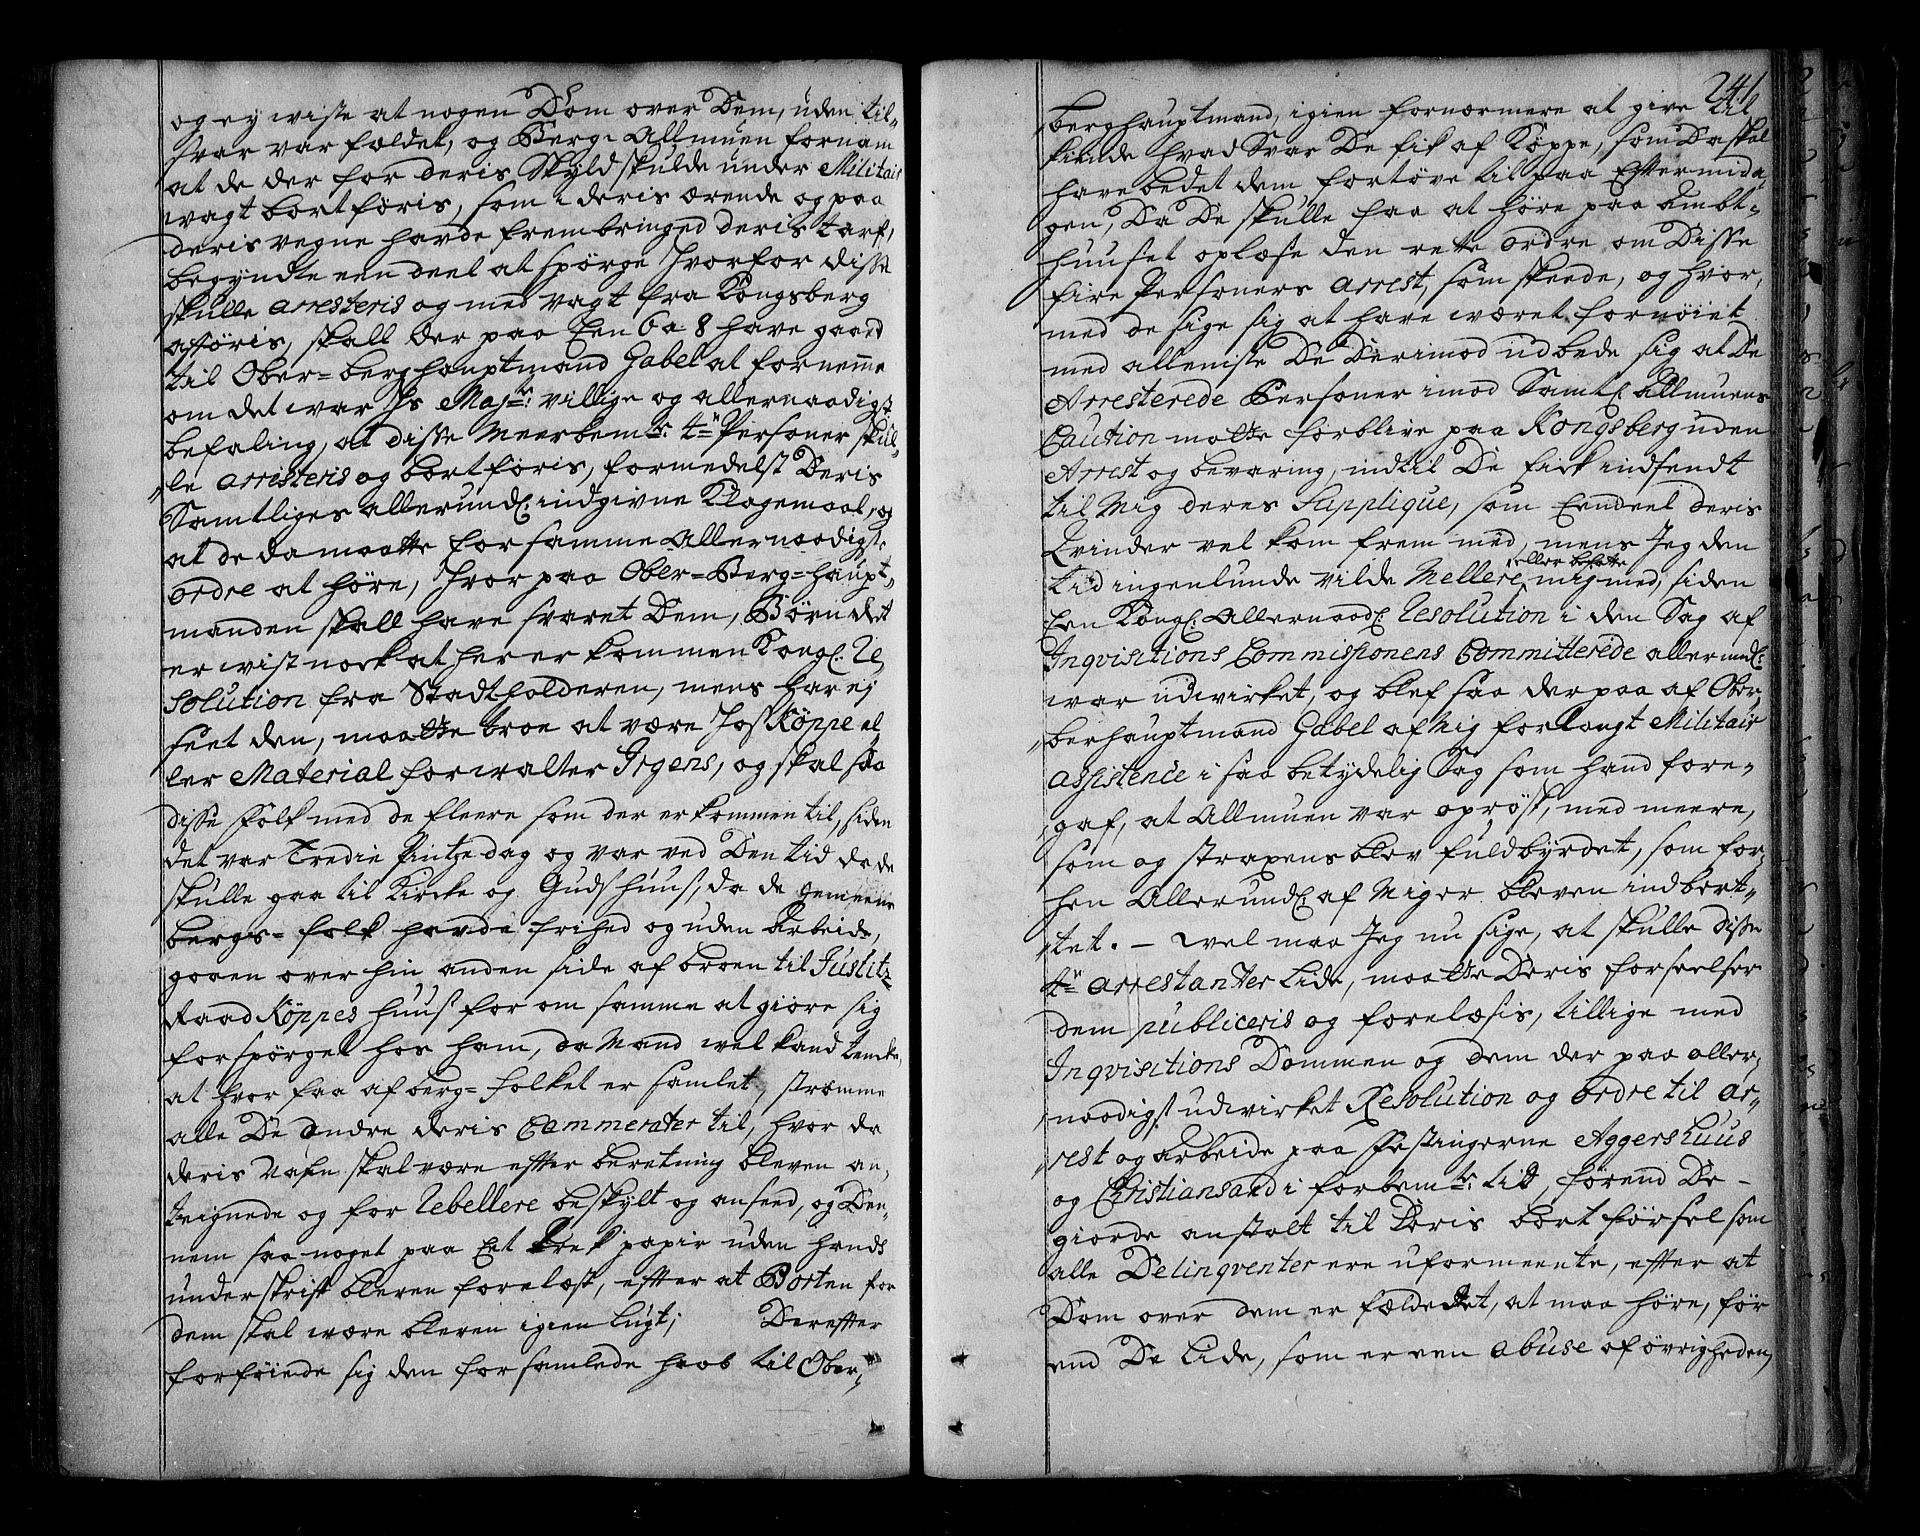 og ey wiste at nogen Dom over Dem, uden til-
svar var fældet, og Berg-Allmuen fornam
at de der for deris Skyld skulde under Militair
wagt bortføris, som i deris ærende og paa
deris vegne havde frembringed deris tarf,
begyndte een deel at spørge hvorfor disse
skulle arresteris og med vagt fra Kongsberg
afføris, skall der paa Een 6 a 8 have gaaed
til Ober-berghauptmand Gabel at fornemme
om det war Hs Majts: villige og allernaadigst
befaling, at disse Meerbemte: tn Personer skul-
le arresteris og bortføris, formedelst Deris
Samtliges allerundl: indgivne Klagemaal, og
at de da maatte for samme Allernaadigste
ordre at høre, hvor paa Ober-Berg-haupt-
manden skall have svaret Dem, Børn det
er wist nock at her er kommen Kongl: Re
solution fra Stadtholderen, mens har ej
seet den, maatte troe at være hos Køppe el
ler Material forwalter Irgens, og skal saa
disse Folk med de fleere som der er kommen til, siden
det var Tredie Pintzedag og var ved Den tid da de
skulle gaa til Kircke og Guds huus, da de gemeene
bergs-folk havde frihed og uden Arbeide,
gaaen over hin anden side af broen til Justitz
Raad Køppes huus for om samme at giøre sig
forspørgel hos ham, da Mand wel kand tencke,
at hvor faa af berg-folket er samlet, strømme
alle De andre deris Cammerater til, hvor da
deris Nafn skal være efter beretning bleven an,
teignede og for Rebellere beskylt og anseed, og Den-
nem saa noget paa Eet Strek papir uden hands
underskrift bleven forelæst, efter at Porten for
dem skal wære bleven igien lugt; Derefter
forføiede sig den forsamlede hoob til Ober-
241
berghauptmand, igien fornærmere at give til
kiende hvad Svar De fik af Køppe, som Da skal
have bedet dem fortøve til paa Eftermida
gen, Da De skulle faa at høre paa Ambt-
huuset oplæse den rette ordre om Disse
fire Personers arrest, som skeede, og hvor,
med de sige sig at have wæret fornøiet
med alleniste De Derimod udbede sig at De
Arresterede Personer imod Samtl: Allmuens
Caution maatte forblive paa Kongsberg uden
Arrest og bevaring, indtil De fick indsendt
til Mig deres Supplique, som Eendeel deris
Qvinder vel kom frem med, mens Jeg den
eller befatte
tid ingenlunde vilde Mellere mig med, siden
Een Kongl: Allernaadl: Resolution i den Sag af
Inqvisitions Commissionens Committerede allerundl:
war udwirket, og blef saa derpaa af Ober,
berhauptmand Gabel af Mig forlangt Militair
assistence i saa betydelig Sag som hand fore-
gaf, at Allmuen var oprøst, med meere,
som og strax ens blev fuldbyrdet, som for,
hen Allerundl: af Mig er bleven indberet-
tet. – Wel maa Jeg nu sige, at skulle disse
tn arrestanter lide, maatte Deris forseelser
dem publiceris og forelæsis, tillige med
Inqvisitions Dommen og dem der paa aller,
naadigst udwirket Resolution og ordre til Ar-
rest og arbeide paa Festingerne Aggershuus
og Christiansand i forbemte: tid, førend De -
giorde anstalt til Deris bort førsel som
alle Delinqventer ere uformeente, efter at
Dom over dem er fældedet, at maa høre, før
end De lide, som er een abuse af øvrigheden,